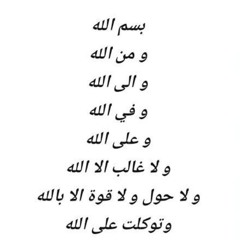 بسم الله
و من الله
و الى الله
و في الله
و على الله
و لا غالب الا الله
و لا حول و لا قوة الا بالله
وتوكلت على الله